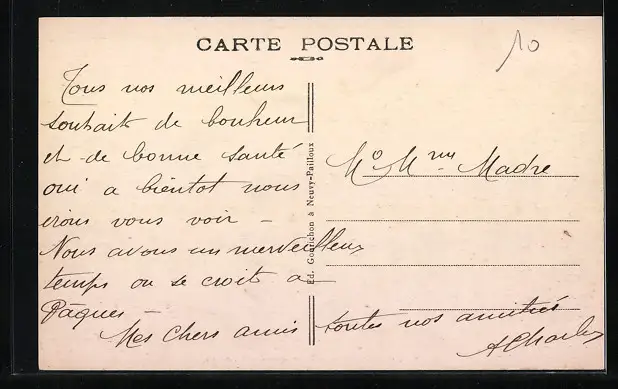 CARTE POSTALE
10
Tous nos meilleurs
souhaits de bonheur
et de bonne santé
oui a bientot nous
irons vous voir -
Nous avons un merveilleux
temps on se croit a
Pâques -
Mes Chers amis toutes nos amitiés
Ed. Gourichon à Neuvy-Pailloux
Madre